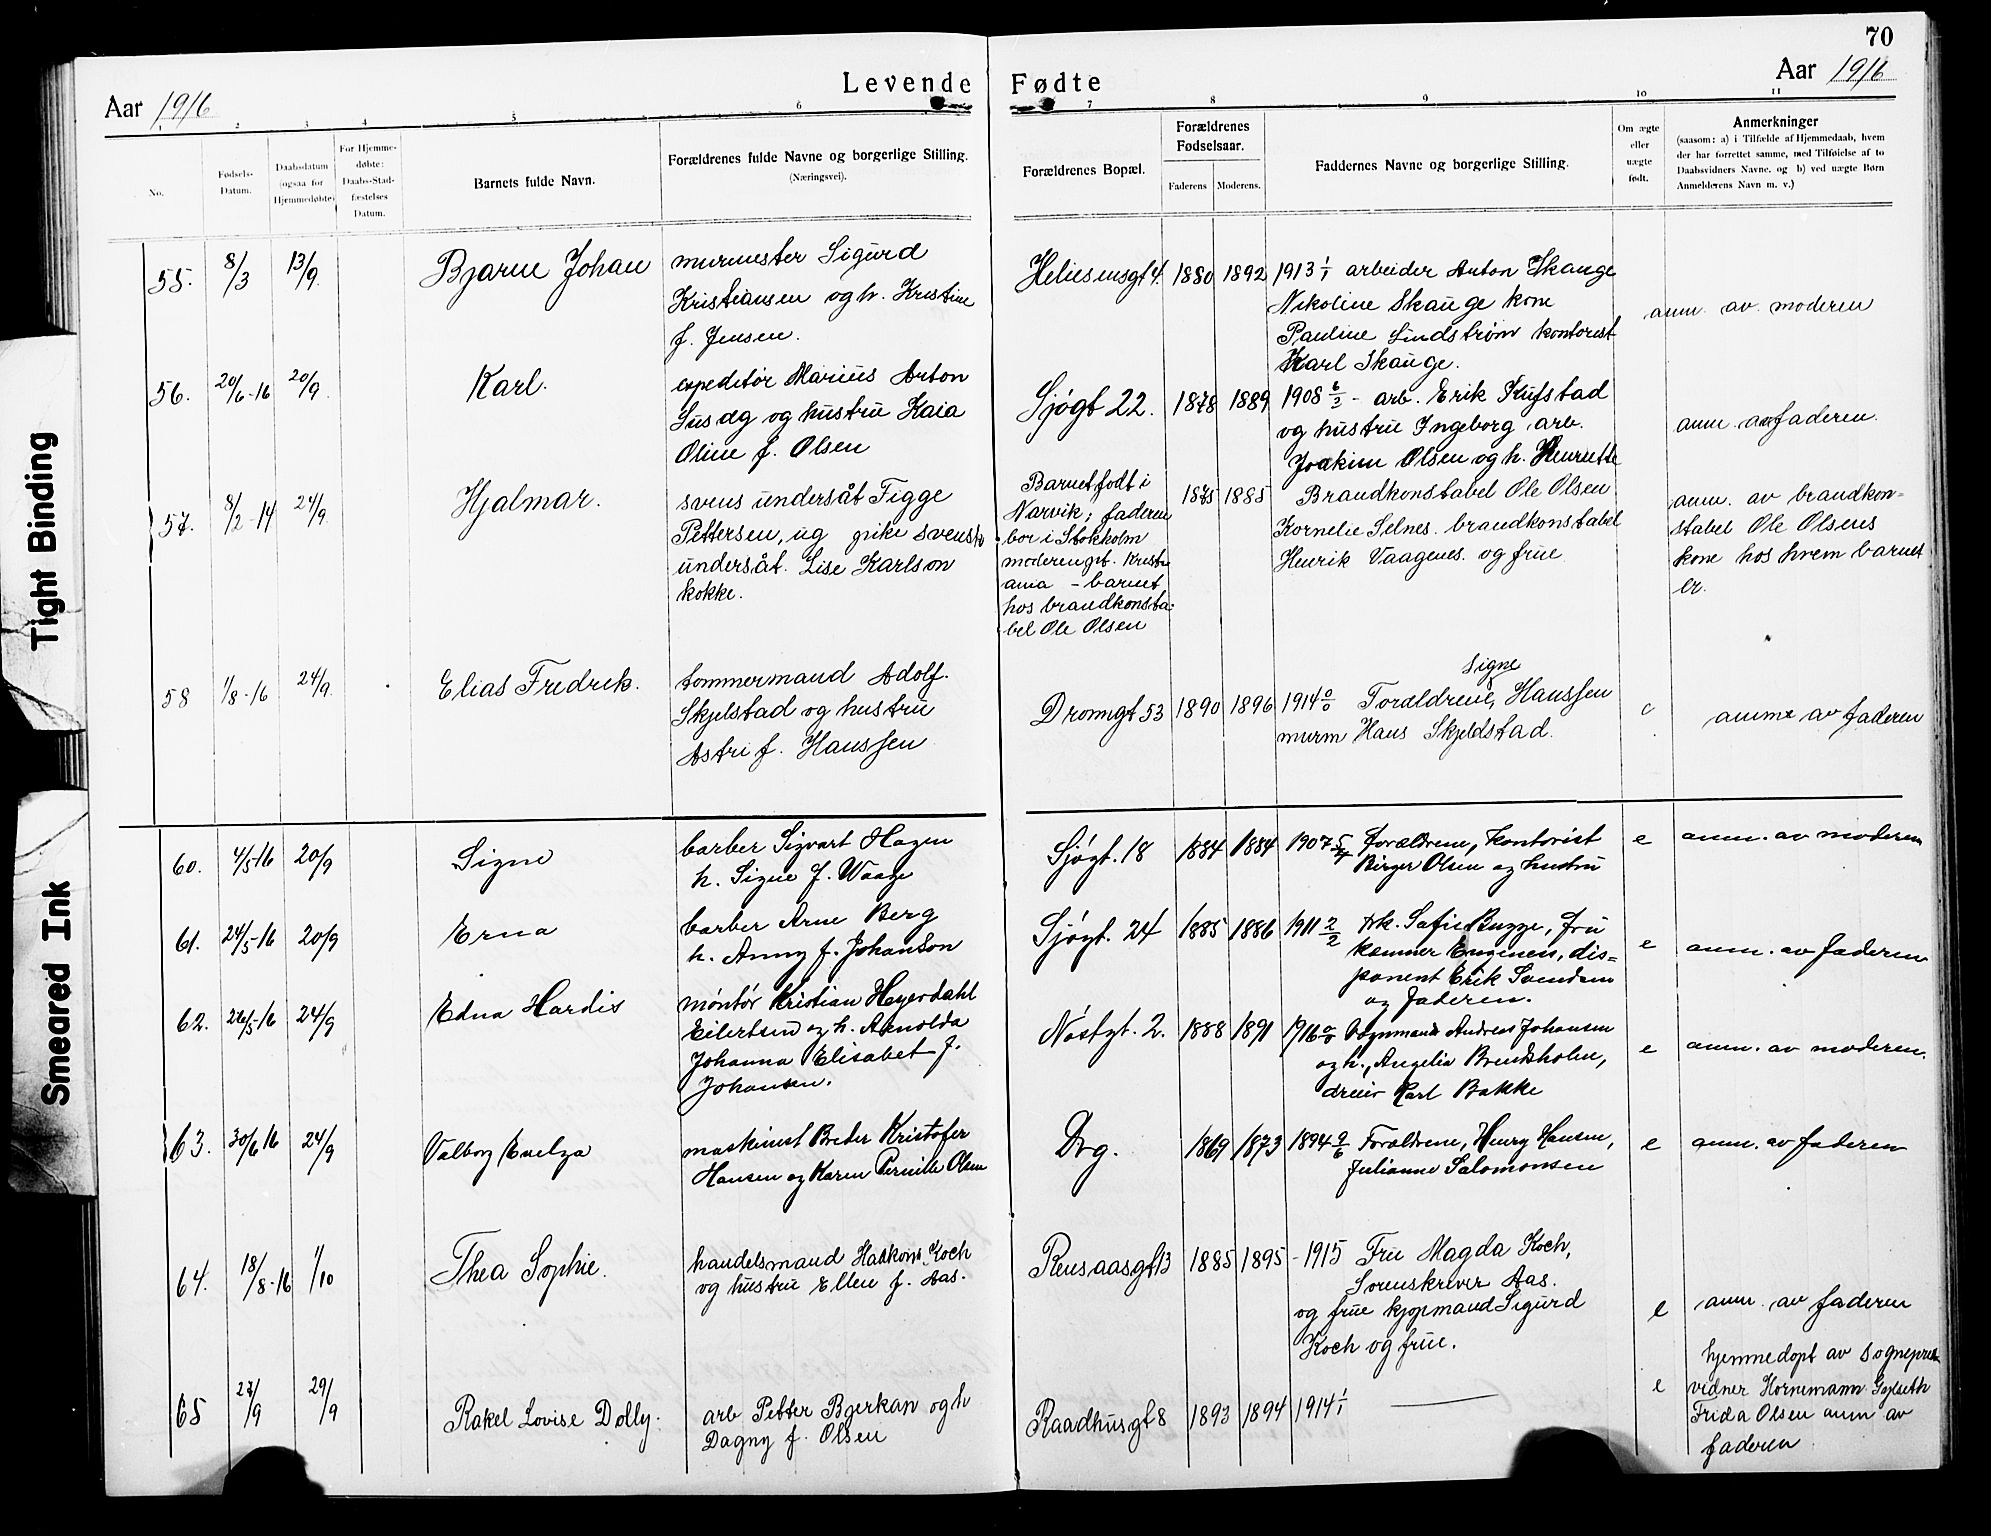 70
Levende Fødte
Aar 1916
Aar 1916
1 2 3 4 5 6 7 8 9 10 11
No.
Fødsels-Datum.
Daabsdatum (ogsaa for Hjemmedøbte)
For Hjemmedøbte: Daabs-Stadfæstelses Datum.
Barnets fulde Navn.
Forældrenes fulde Navne og borgerlige Stilling.
(Næringsvei).
Forældrenes Bopæl.
Forældrenes Fødselsaar.
Faderens
Moderens.
Faddernes Navne og borgerlige Stilling.
Om ægte eller uægte født.
Anmerkninger
(saasom: a) i Tilfælde af Hjemmedaab, hvem
der har forrettet samme, med Tilføielse af to
Daabsvidners Navne. og b) ved uægte Børn
Anmelderens Navn m. v.)
55. 8/3 13/9 Bjarne Johan
murmester Sigurd
Kristiansen og h. Kristine
f. Jensen.
Heliesensgt 4. 1880 1892
1913 1/1 arbeider Anton Skauge
Nikoline Skauge kone
Pauline Lindstrøm kontorist
Karl Skauge.
anm. av moderen
56. 20/6-16 20/9 Karl.
expeditør Marius Anton
og hustru Kaia
Oline f. Olsen
Sjøgt 22. 1878 1889
1908 6/2 - arb. Erik
og hustru Ingeborg, arb.
Joakim Olsen og h. Henriette
anm. av faderen.
57. 8/2-14 24/9 Hjalmar.
svens undersåt Figge
Pettersen, ug pike svensk
undersåt. Lise Karlson
kokke.
Barnet født i
Narvik; faderen
bor i Stokholm
moderen pt. Kristi
ania - barnet
hos brandkonsta-
bel Ole Olsen
1875 1885
Brandkonstabel Ole Olsen
Kornelie Selnes. brandkonstabel
Henrik Vaagenes. og frue
anm. av brandkon-
stabel Ole Olsens
kone hos hvem barnet
er.
58 1/8-16 24/9 Elias Fredrik.
tømmermand Adolf.
Skjelstad og hustru
Astri f. Hanssen
Dronngt 53 1890 1896
Signe
1914 0/0 Forældrene, Hanssen
murm Hans Skjeldstad.
e anme av faderen
60. 4/5-16 20/9 Signe
barber Sigvart Hagen
h. Signe f. Waage
Sjøgt. 18 1884 1884
1907 5/4 Forældrene, kontorist
Birger Olsen og hustru
e anm. av moderen
61. 24/5-16 20/9 Erna
barber Arne Berg
h. Anny f. Johanson
Sjøgt. 24 1885 1886
1911 2/2 frk. Sofie Bugge, fru
kemner Engenes, dis=
ponent Erik Svendsen
og faderen.
e anm. av faderen
62. 26/5-16 24/9 Edna Hardis
møntør Kristian Heyerdahl
Eilertsen og h. Arnolda
Johanna Elisabet f.
Johansen.
Nøstgt. 2. 1888 1891
1916 0/0 Vognmand Andreas Johansen
og h., Angelia Brendsholm,
dreier Karl Bakke
e anm. av moderen.
63. 30/6 16 24/9 Valborg Evelya
maskinist Breder Kristofer
Hansen og Karen Pernille Olsen
Drg. 1869 1873
1894 9/6 Forældrene, Henry Hansen,
Julianne Salomonsen
e anm. av faderen
64. 18/8-16 1/10 Thea Sophie.
handelsmand Haakons Koch
og hustru Ellen f. Aas.
Rensaasgt 13 1885 1895
- 1915 Fru Magda Koch,
Sorenskriver Aas.
og frue kjøpmand Sigurd
Koch og frue.
e anm. av faderen
65 27/9 29/9 Rakel Lovise Dolly.
arb Petter Bjerkan og h
Dagny f. Olsen
Raadhusgt 8 1893 1894 1914 1/1
e hjemmedøpt av Sognepre
vidner Hornemann Gylseth
Frida Olsen anm av
faderen
Tight Binding
Smeared Ink